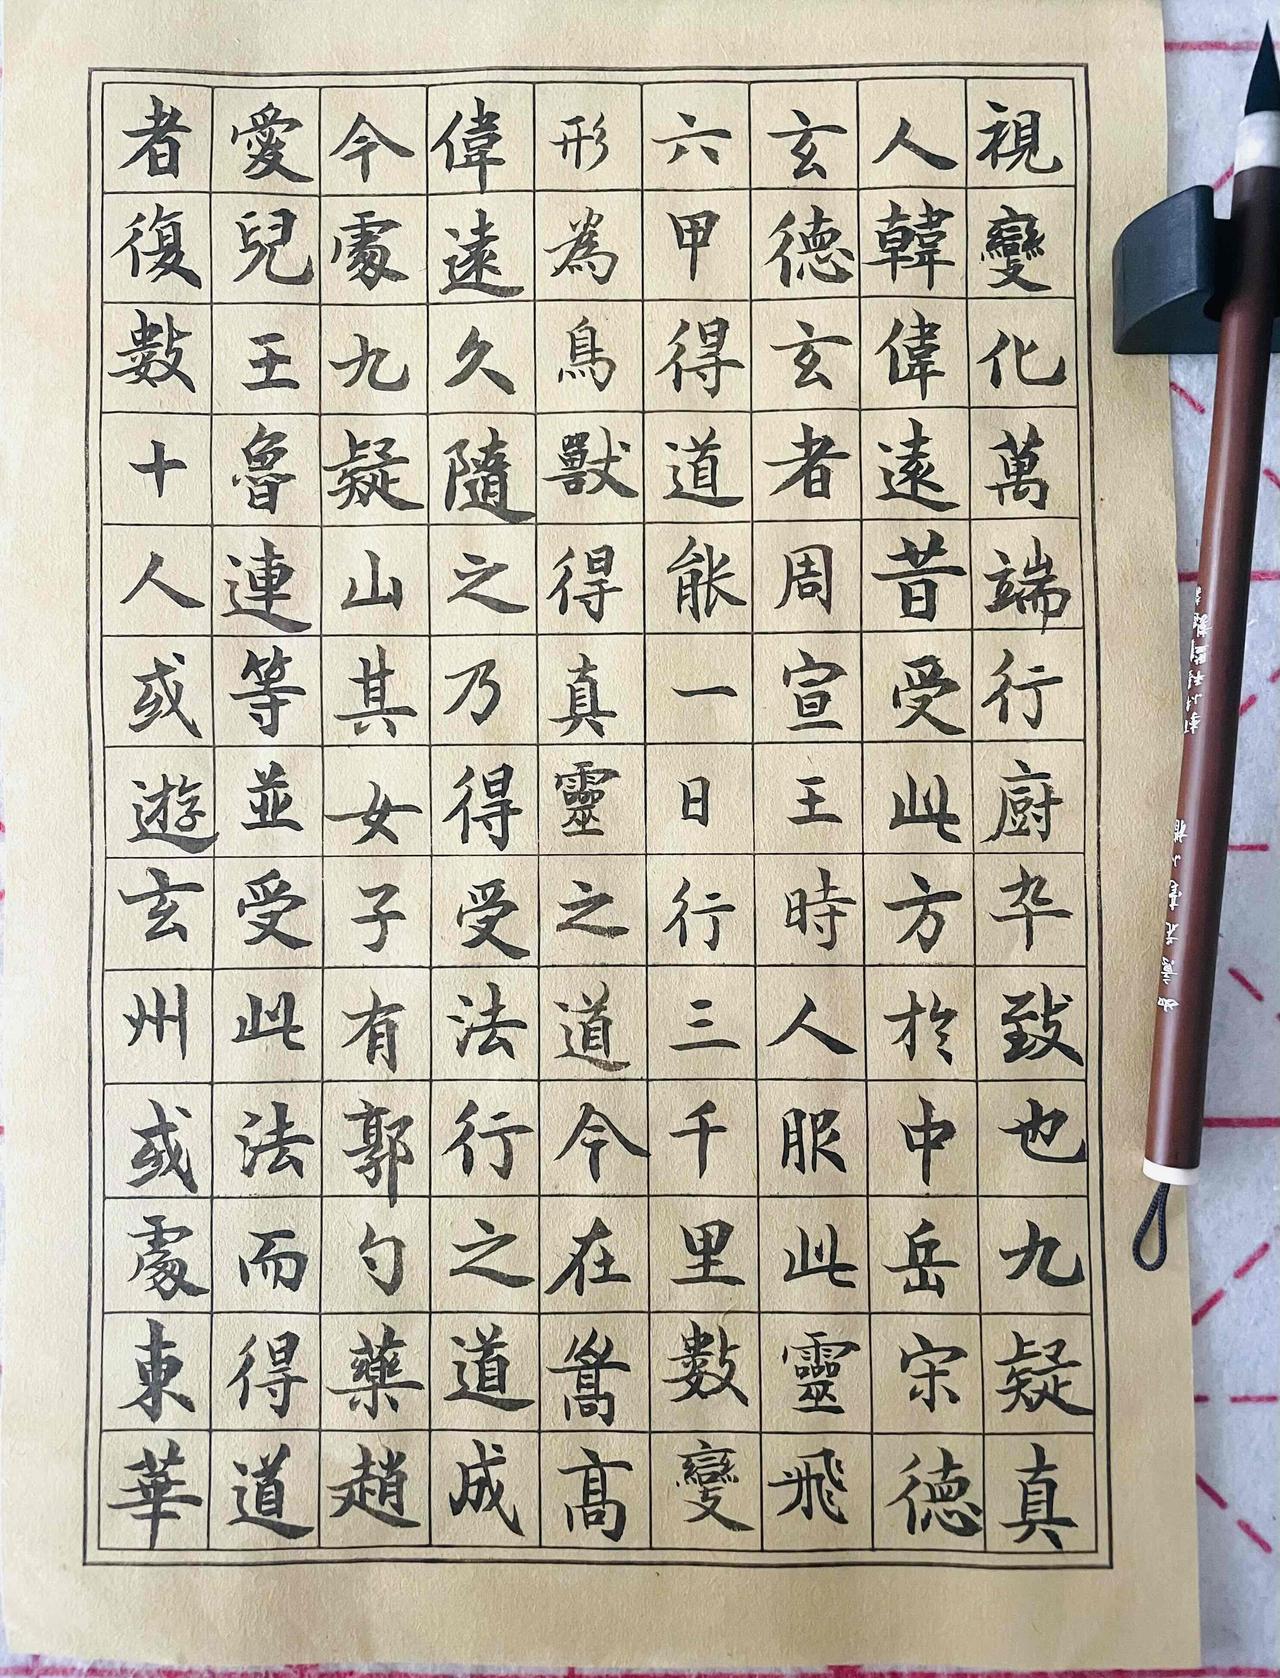 視變化萬端行廚卒致也九疑真
人韓偉遠昔受此方於中岳宋德
玄德玄者周宣王時人服此靈飛
六甲得道能一日行三千里數變
形為鳥獸得真靈之道今在嵩高
偉遠久隨之乃得受法行之道成
今處九疑山其女子有郭勺藥趙
愛兒王魯連等並受此法而得道
者復數十人或遊玄州或處東華